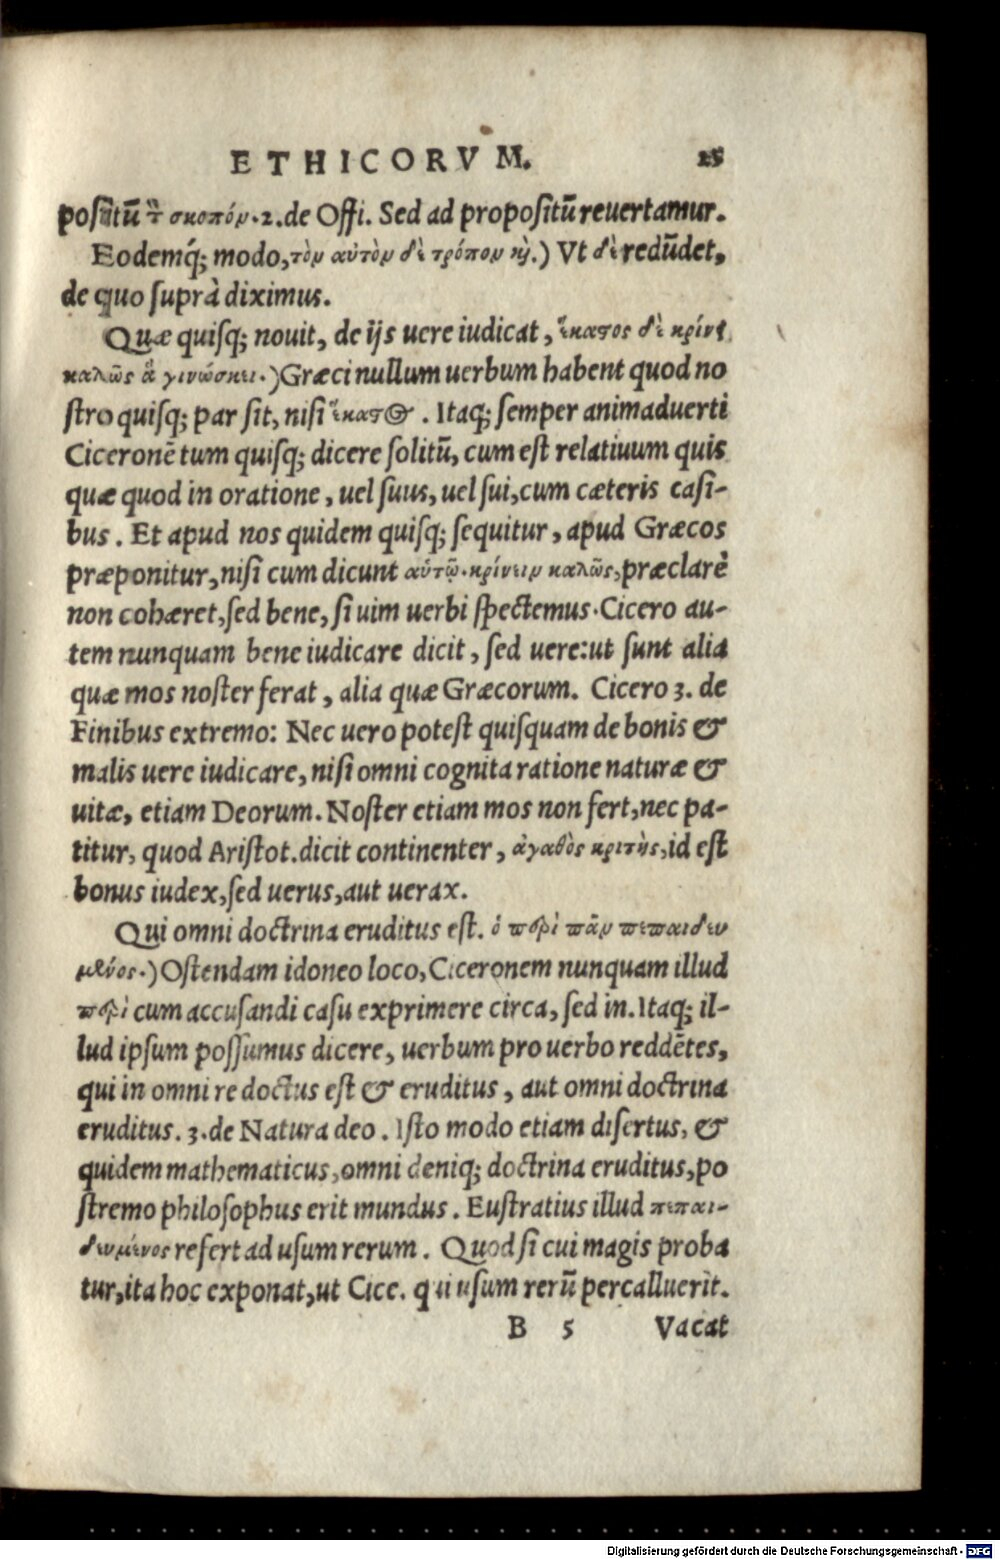 ETHICORVM. 25
positũ τ̀ σκοπόν. 2. de Offi. Sed ad propositũ reuertamur.
Eodemq́; modo, τὸν αὐτὸν δὲ τρόπον κỳ.) Vt δὲ redũdet,
de quo suprà diximus.
Quæ quisq; nouit, de ijs uere iudicat, ἕκαστος δὲ κρίνει
καλῶς ἃ γινώσκει.) Græci nullum uerbum habent quod no
stro quisq; par sit, nisi ἕκαστος. Itaq; semper animaduerti
Ciceronẽ tum quisq; dicere solitũ, cum est relatiuum quis
quæ quod in oratione, uel suus, uel sui, cum cæteris casi-
bus. Et apud nos quidem quisq; sequitur, apud Græcos
præponitur, nisi cum dicunt αὐτῷ. κρίνειν καλῶς, præclarè
non cohæret, sed bene, si uim uerbi spectemus. Cicero au-
tem nunquam bene iudicare dicit, sed uere: ut sunt alia
quæ mos noster ferat, alia quæ Græcorum. Cicero 3. de
Finibus extremo: Nec uero potest quisquam de bonis &
malis uere iudicare, nisi omni cognita ratione naturæ &
uitæ, etiam Deorum. Noster etiam mos non fert, nec pa-
titur, quod Aristot. dicit continenter, ἀγαθὸς κριτὴς, id est
bonus iudex, sed uerus, aut uerax.
Qui omni doctrina eruditus est. ὁ περὶ πᾶν πεπαιδευ
μένος.) Ostendam idoneo loco, Ciceronem nunquam illud
περὶ cum accusandi casu exprimere circa, sed in. Itaq; il-
lud ipsum possumus dicere, uerbum pro uerbo reddẽtes,
qui in omni re doctus est & eruditus, aut omni doctrina
eruditus. 3. de Natura deo. Isto modo etiam disertus, &
quidem mathematicus, omni deniq; doctrina eruditus, po
stremo philosophus erit mundus. Eustratius illud πεπαι-
δευμένος refert ad usum rerum. Quod si cui magis proba
tur, ita hoc exponat, ut Cice. qui usum rerũ percalluerit.
B 5 Vacat
Digitalisierung gefördert durch die Deutsche Forschungsgemeinschaft - DFG